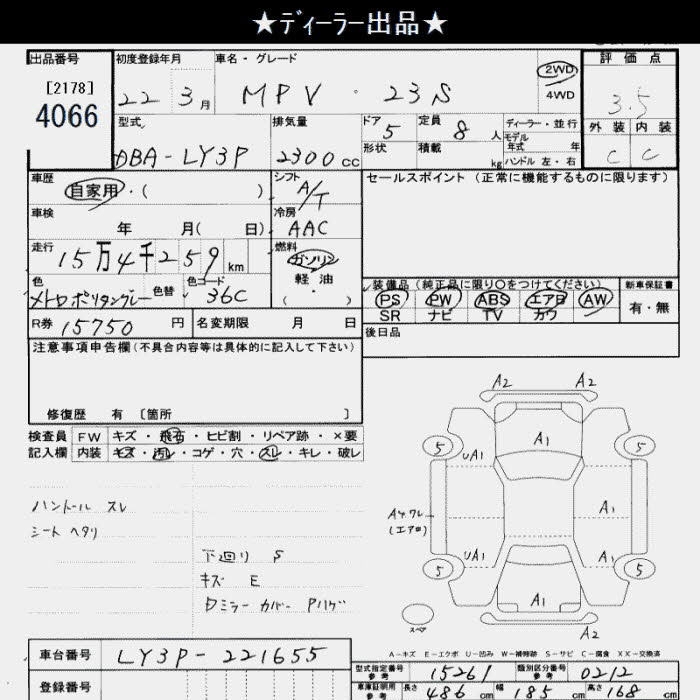 ★ディーラー出品★
出品番号
[2178]
4066
初度登録年月
22 3月
車名・グレード
MPV・23S
2WD
4WD
評価点
3.5
外装 内装
C C
型式
DBA-LY3P
排気量
2300cc
ドア
5
形状
定員
8人
積載
kg
ディーラー・並行
モデル年式 年
ハンドル 左・右
車歴
自家用・( )
シフト
A/T
セールスポイント (正常に機能するものに限ります)
車検
年 月( 日)
冷房
AAC
走行
15万4千259km
燃料
ガソリン
軽油
・( )
色
メトロポリタングレー
色替
色コード
36C
装備品 (純正品に限り○をつけてください)
PS PW ABS エアB AW
SR ナビ TV カワ
新車保証書
有・無
R券 15750円
名変期限 月 日
後日品
注意事項申告欄(不具合内容等は具体的に記入して下さい)
修復歴 有 [箇所 ]
検査員記入欄
FW キズ・飛石・ヒビ割・リペア跡・×要
内装 キズ・汚レ・コゲ・穴・スレ・キレ・破レ
ハンドル スレ
シート ヘタリ
下廻り S
キズ E
A2 A2
A1
5 5
UA1
A1
(エアロ)
UA1 A1
5 5
A1
A2
スペア
A-キズ E-エクボ U-凹み W-補修跡 S-サビ C-腐食 XX-交換済
車台番号
LY3P-221655
登録番号
型式指定番号 参考
15261
類別区分番号 参考
0212
車庫証明用 参考
長さ 486cm 幅 185cm 高さ 168cm